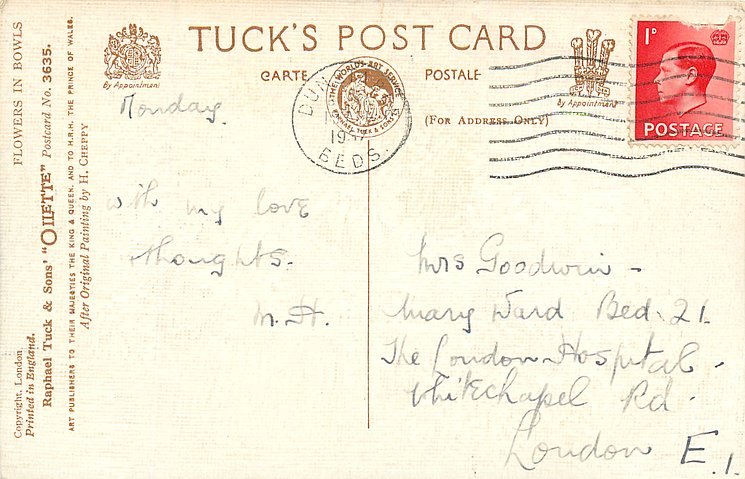 TUCK'S POST CARD
By Appointment
CARTE
POSTALE
(FOR ADDRESS ONLY)
By Appointment
THE WORLD'S ART SERVICE
RAPHAEL TUCK & SONS LTD
BEDS.
1D
POSTAGE
FLOWERS IN BOWLS
Raphael Tuck & Sons' "OILETTE" Postcard No. 3635.
ART PUBLISHERS TO THEIR MAJESTIES THE KING & QUEEN, AND TO H.R.H. THE PRINCE OF WALES.
After Original Painting by H. CHEPPY
Copyright, London
Printed in England.
Monday.
with my love
thoughts.
M. H.
Mrs Goodwin -
Mary Ward Bed. 21.
The London Hospital.
Whitechapel Rd.
London E.1.